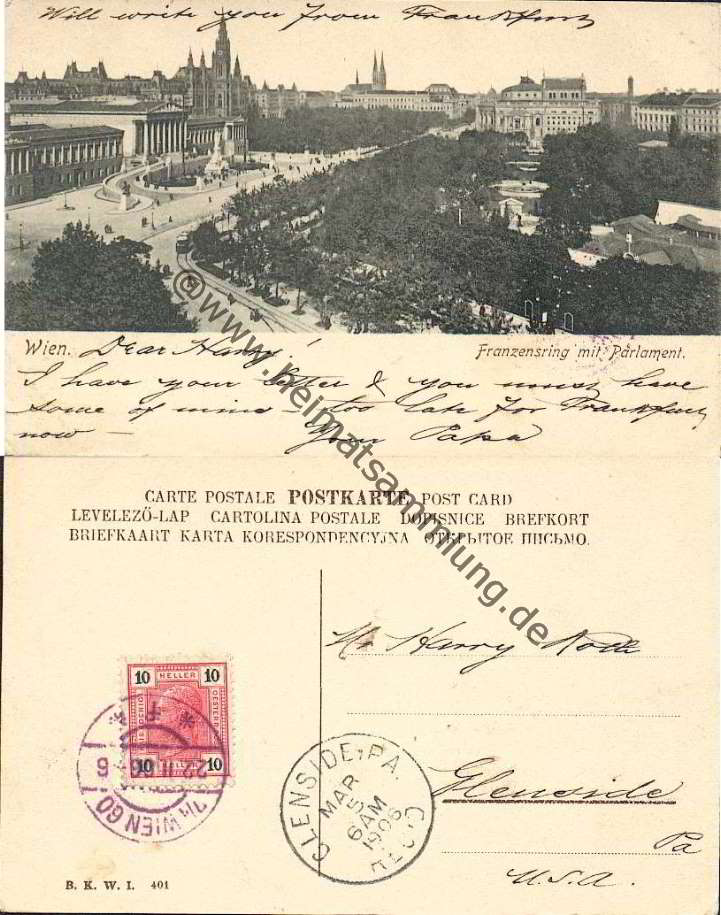 Will write you from Frankfurt
Wien. Dear Harry!
Franzensring mit Parlament.
I have your letter & you must have
some of mine – too late for Frankfurt
now – Your Papa
© www.heimatsammlung.de
CARTE POSTALE POSTKARTE POST CARD
LEVELEZŐ-LAP CARTOLINA POSTALE DOPISNICE BREFKORT
BRIEFKAART KARTA KORESPONDENCYJNA ОТКРЫТОЕ ПИСЬМО.
Mr Harry Roth
10 HELLER 10
10 10
WIEN 60
GLENSIDE, PA.
MAR
5
6 AM
1906
REC'D
Glenside
Pa
U.S.A.
B. K. W. I. 401